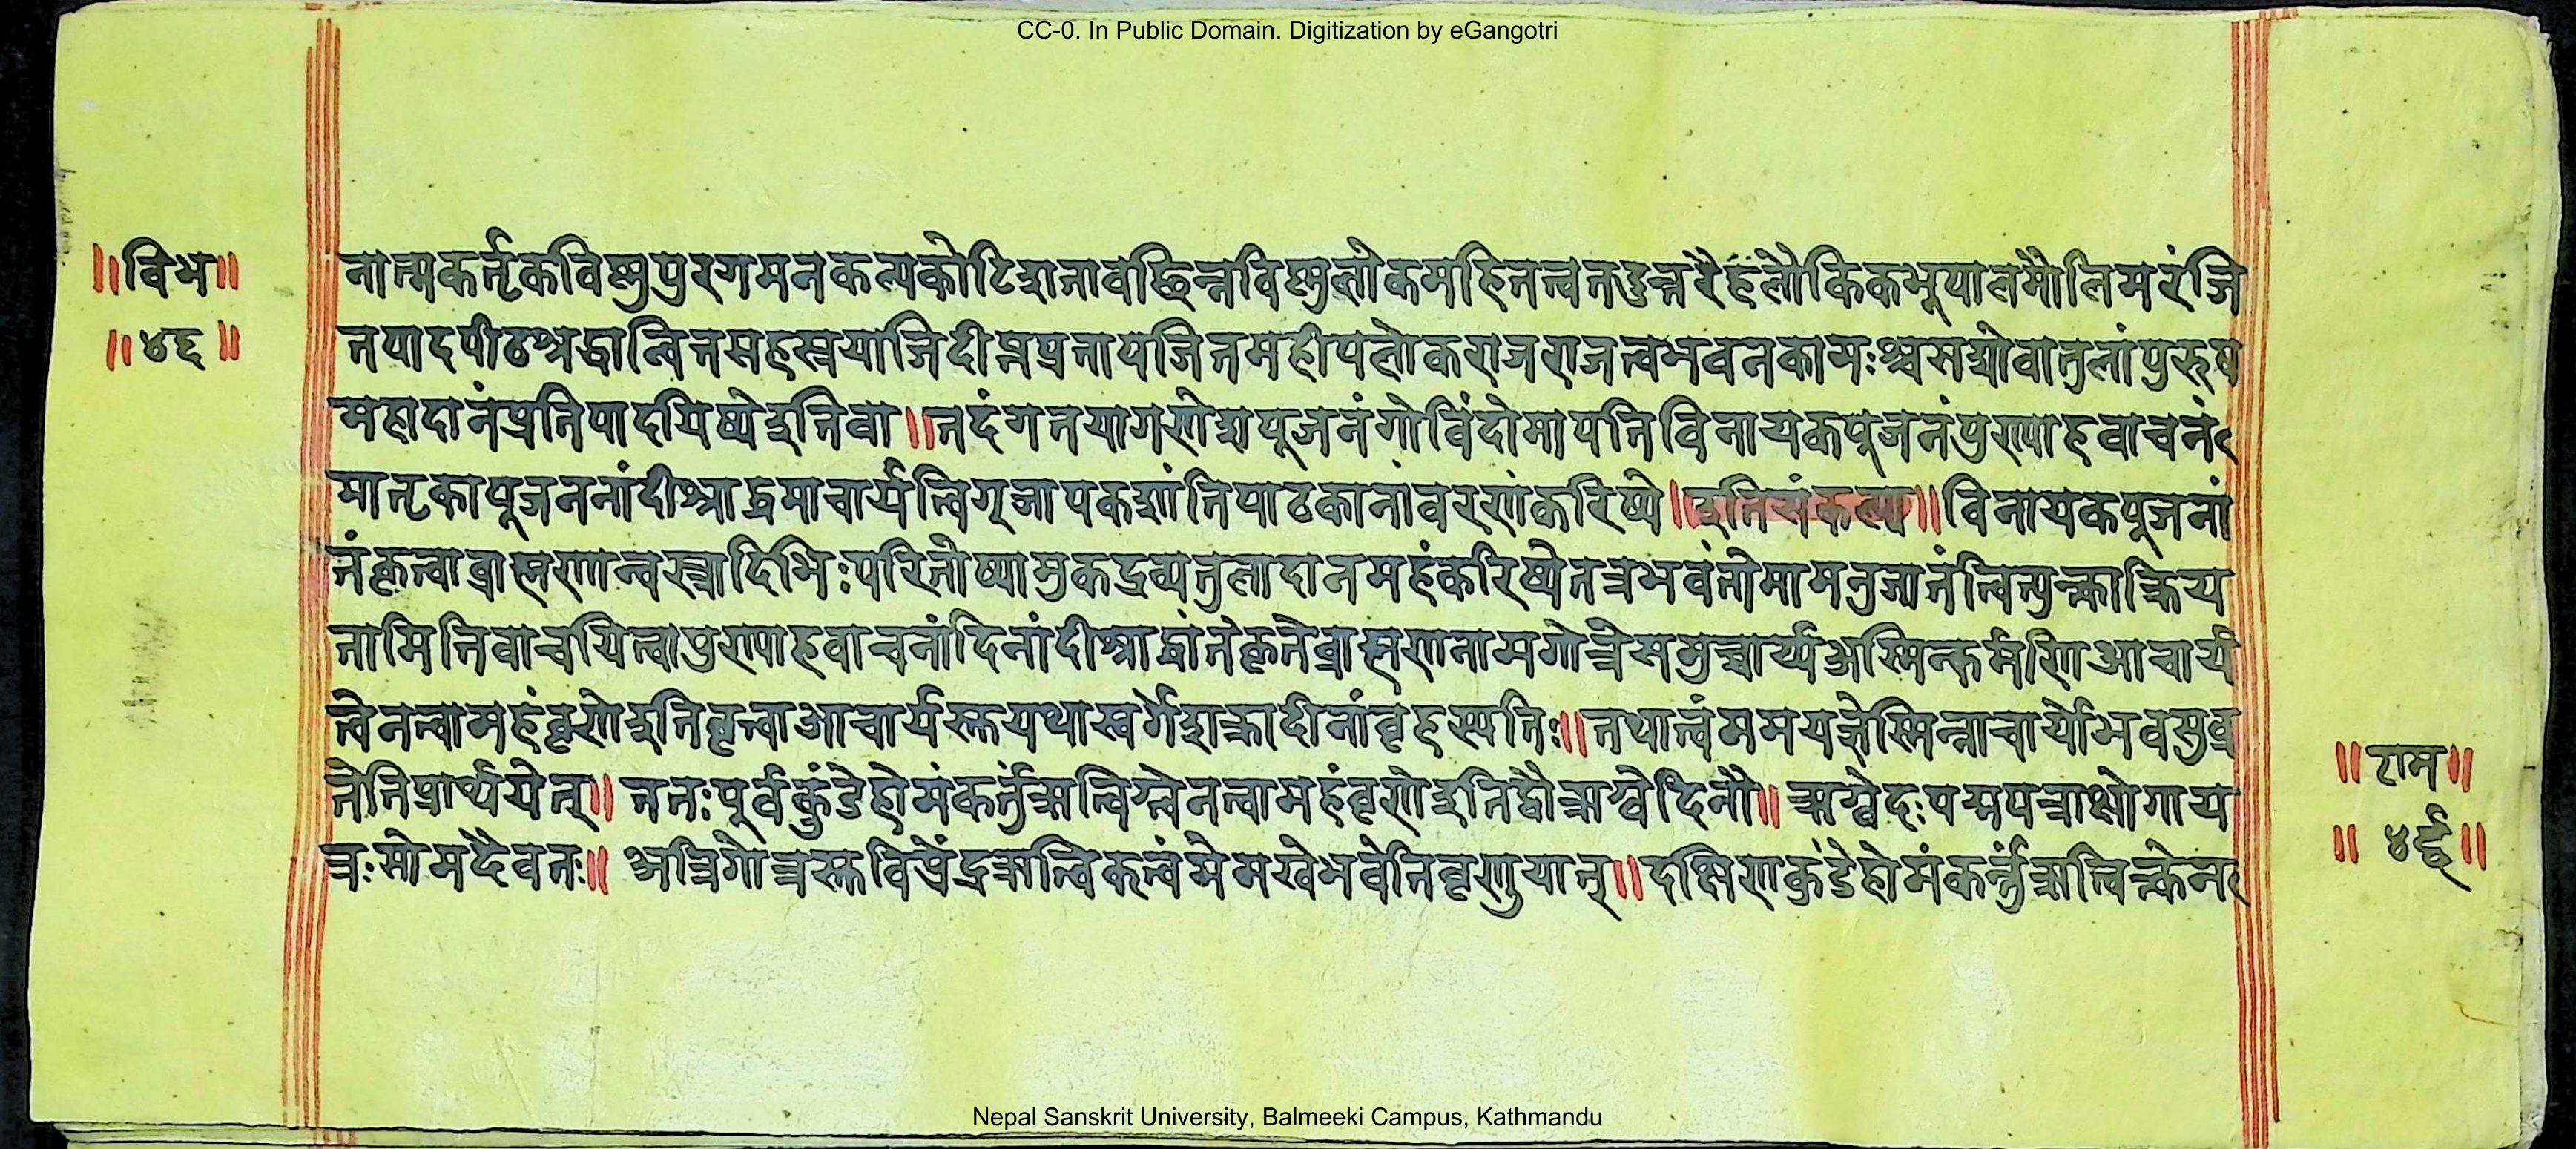 CC-0. In Public Domain. Digitization by eGangotri
॥विभ॥
॥४६॥
नात्मकर्तृकविष्णुपुरगमनकल्पकोटिशतावच्छिन्नविष्णुलोकमहितत्वतदुत्तरैहलौकिकभूपालमौलिमरंजि
तपादपीठश्रद्धान्वितसहस्रयाजिदीप्तप्रतापजितमहीपलोकराजराजत्वभवनकामःश्वसद्योवातुलांपुरुष
महादानंप्रतिपादयिष्येइतिवा॥तदंगतयागणेशपूजनंगोविंदोमापतिविनायकपूजनंपुण्याहवाचनं
मातृकापूजननांदीश्राद्धमाचार्यर्त्विग्जापकशांतिपाठकानांवरणंकरिष्ये॥इतिसंकल्प्य॥विनायकपूजनां
तंकृत्वाब्राह्मणान्वस्त्रादिभिःपरितोष्यामुकद्रव्यतुलादानमहंकरिष्येतत्रभवंतोमामनुजानंत्वित्युक्त्वाक्रिय
तामितिवाचयित्वापुण्याहवाचनांदिनांदीश्राद्धांतेकृतेब्राह्मणनामगोत्रेसमुच्चार्य्यअस्मिन्कर्मणिआचार्य
त्वेनत्वामहंवृणेइतिवृत्वाआचार्यस्तुयथास्वर्गेशक्रादीनांवृहस्पतिः॥तथात्वंममयज्ञेस्मिन्नाचार्योभवसुव्र
तेतिप्रार्थ्ययेत्॥ततःपूर्वकुंडेहोमंकर्तुंऋत्विग्त्वेनत्वामहंवृणेइतिद्वौऋग्वेदिनौ॥ऋग्वेदःपद्मपत्राक्षोगाय
त्रःसोमदैवतः॥अत्रिगोत्रस्तुविप्रेंद्रऋत्विक्त्वंमेमखेभवेतिवृणुयात्॥दक्षिणकुंडेहोमंकर्त्तुंऋत्विक्त्वेन
॥राम॥
॥४६॥
Nepal Sanskrit University, Balmeeki Campus, Kathmandu